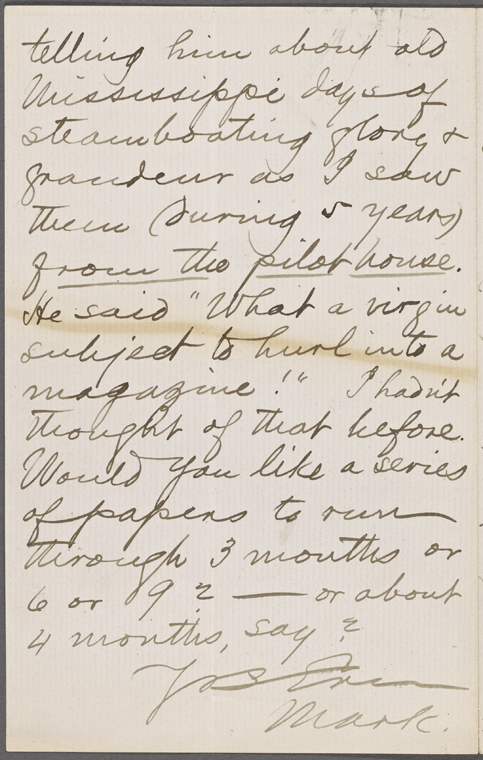 telling him about old
Mississippi days of
steamboating glory &
grandeur as I saw
them (during 5 years)
from the pilot house.
He said "What a virgin
subject to hurl into a
magazine!" I hadn't
thought of that before.
Would you like a series
of papers to run
through 3 months or
6 or 9? — or about
4 months, say?
Yrs Ever
Mark.